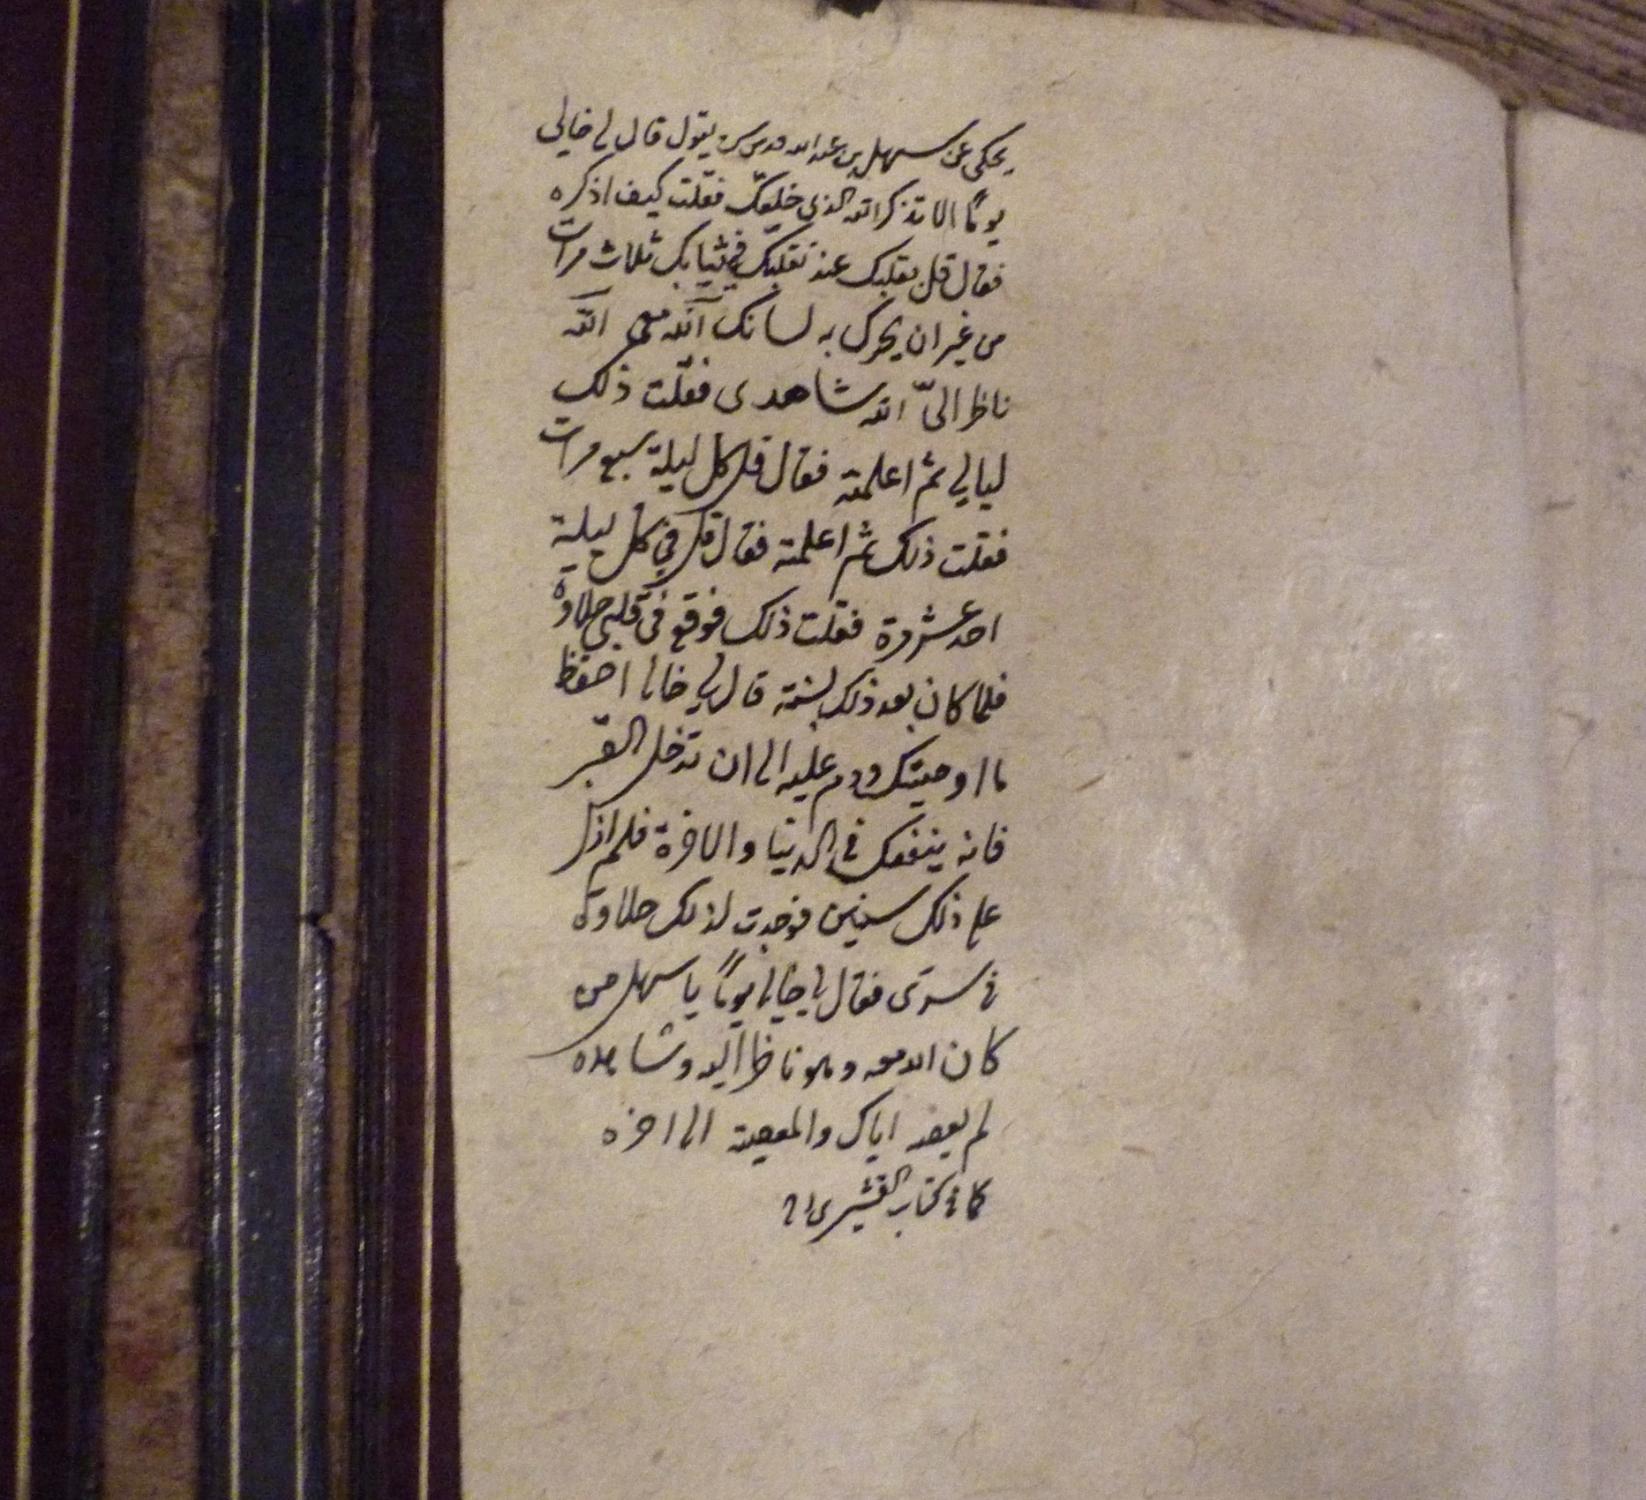 يحكى عن سهل بن عبد الله قدس سره يقول قال لي خالي
يوماً الا تذكر الله الذي خلقك فقلت كيف اذكره
فقال قل بقلبك عند تقلبك في ثيابك ثلاث مرات
من غير ان يحرك به لسانك الله معي الله
ناظر اليّ الله شاهدى فقلت ذلك
ليالي ثم اعلمته فقال قل كل ليلة سبع مرات
فقلت ذلك ثم اعلمته فقال قل في كل ليلة
احد عشر مرة فقلت ذلك فوقع في قلبي حلاوة
فلما كان بعد ذلك بسنة قال لي خالى احفظ
ما اوصيتك ودم عليه الى ان تدخل القبر
فانه ينفعك في الدنيا والاخرة فلم ازل
على ذلك سنين فوجدت لذلك حلاوة
في سرى فقال لي خالى يوماً يا سهل من
كان الله معه وهو ناظر اليه وشاهده
لم يعصه اياك والمعصية الى اخره
كما في كتاب القشيرى